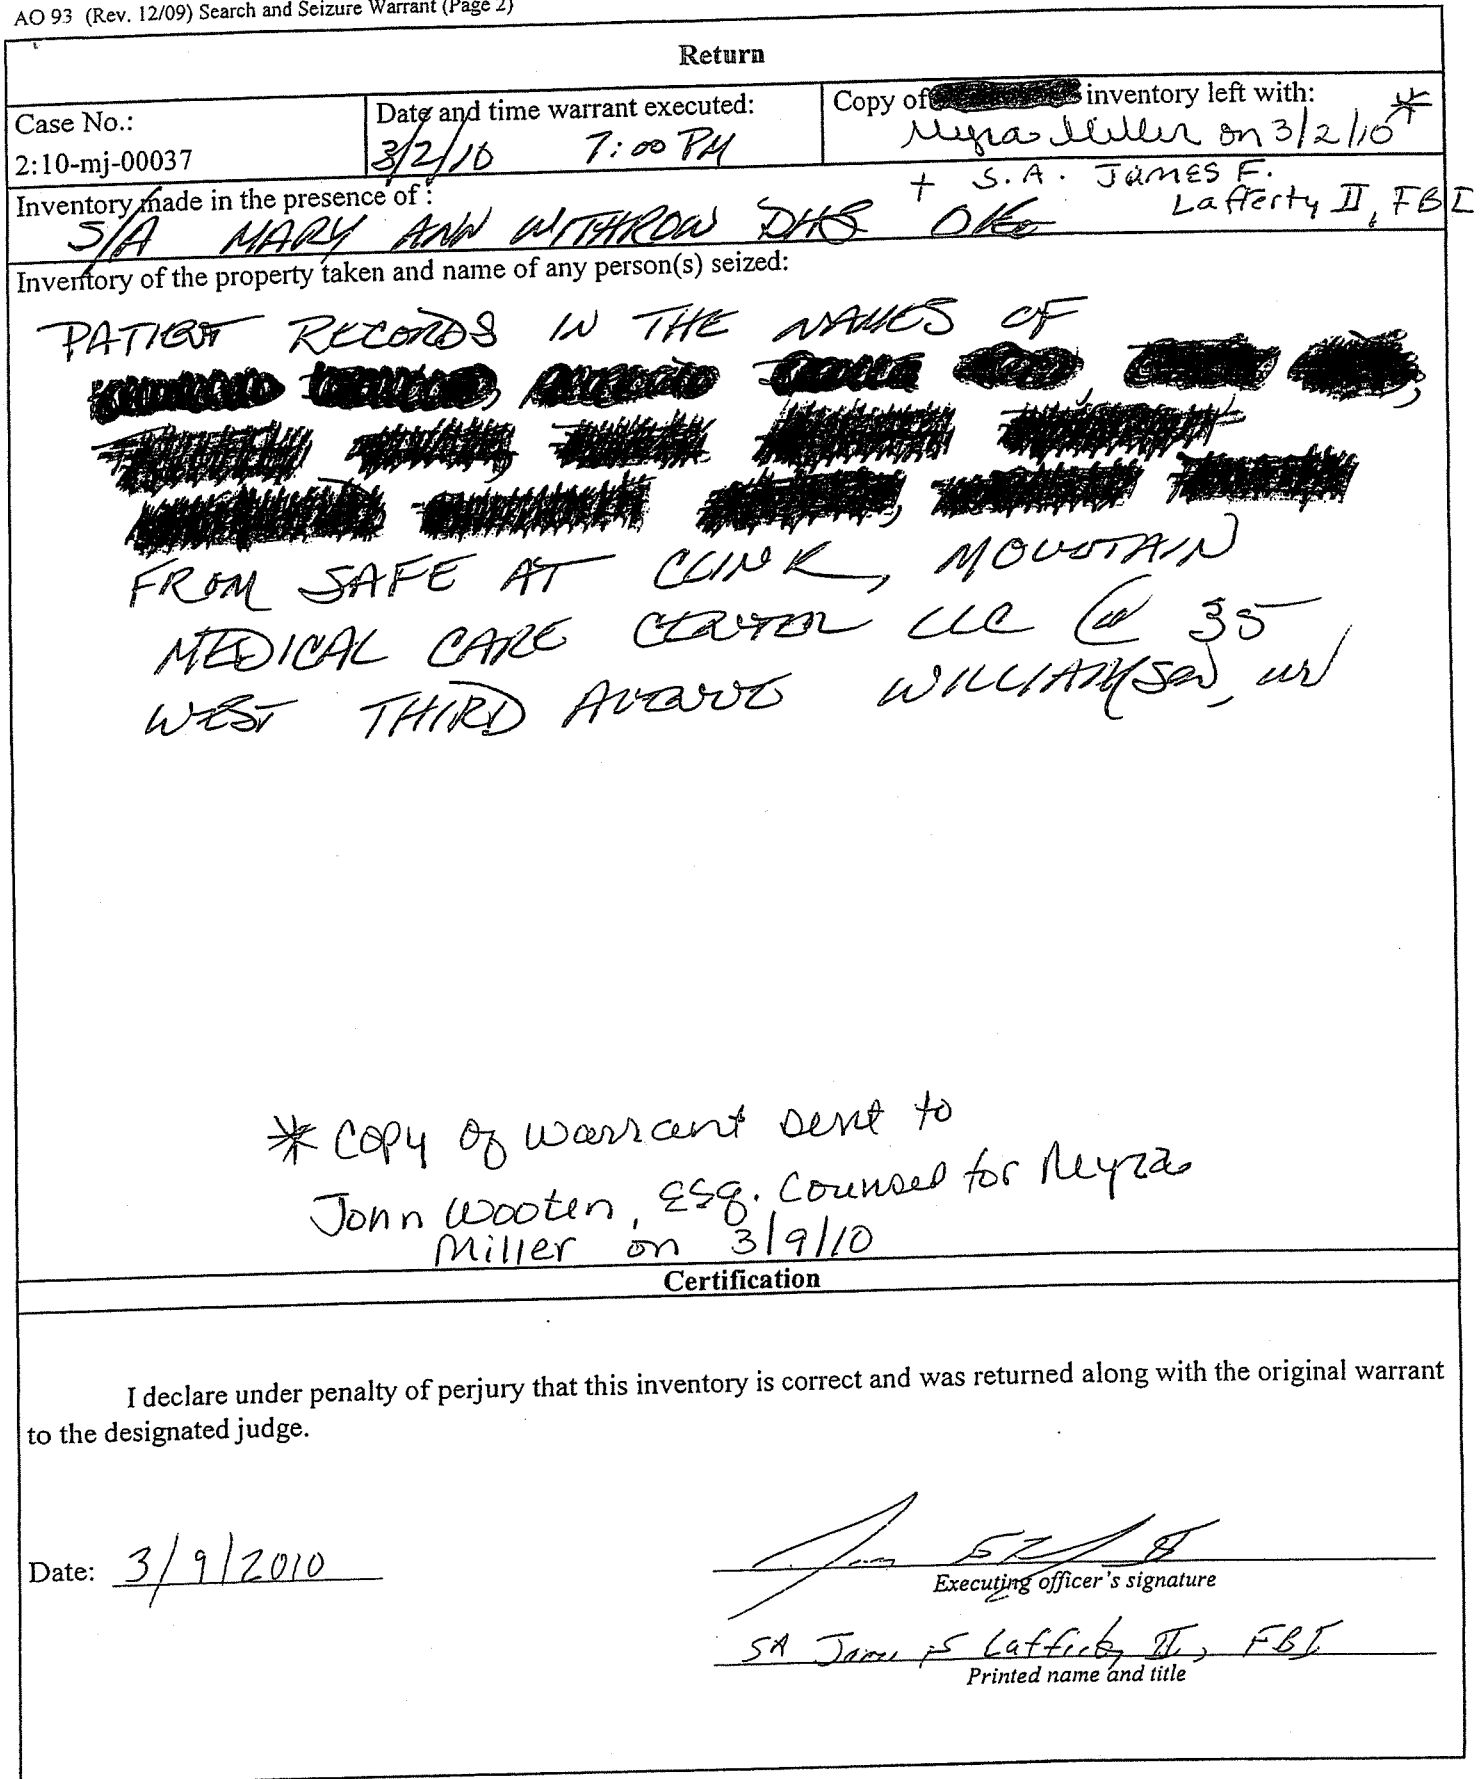 AO 93 (Rev. 12/09) Search and Seizure Warrant (Page 2)
Return
Case No.:
2:10-mj-00037
Date and time warrant executed:
3/2/10 7:00 PM
Copy of inventory left with:
Myra Miller on 3/2/10 *
Inventory made in the presence of :
+ S.A. JAMES F.
Lafferty II, FBI
S/A MARY ANN WITHROW DHS
Inventory of the property taken and name of any person(s) seized:
PATIENT RECORDS IN THE NAMES OF
FROM SAFE AT CLINIC, MOUNTAIN
MEDICAL CARE CENTER LLC @ 35
WEST THIRD AVENUE WILLIAMSON, WV
* Copy of warrant sent to
John Wooten, Esq. Counsel for Myra
Miller on 3/9/10
Certification
I declare under penalty of perjury that this inventory is correct and was returned along with the original warrant
to the designated judge.
Date: 3/9/2010
Executing officer's signature
SA James F Lafferty II, FBI
Printed name and title